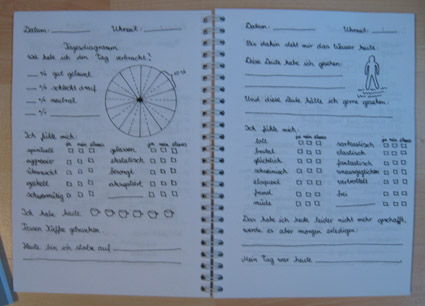 Datum: Uhrzeit:
Tagesdiagramm
Wie habe ich den Tag verbracht?
% gut gelaunt
% schlecht drauf
% neutral
%
Ich fühle mich:
ja nein etwas
gelassen
aggressiv
akzeptiert
schwermütig
Ich habe heute
Tassen Kaffee getrunken.
Heute bin ich stolz auf
Datum: Uhrzeit:
Bis dahin steht mir das Wasser heute:
Diese Leute habe ich gesehen:
Und diese Leute hätte ich gerne gesehen:
Ich fühle mich:
ja nein etwas
toll
sarkastisch
elastisch
glücklich
fantastisch
unausgeglichen
eloquent
wertvoll
fremd
frei
müde
Das habe ich heute leider nicht mehr geschafft,
werde es aber morgen erledigen:
Mein Tag war heute